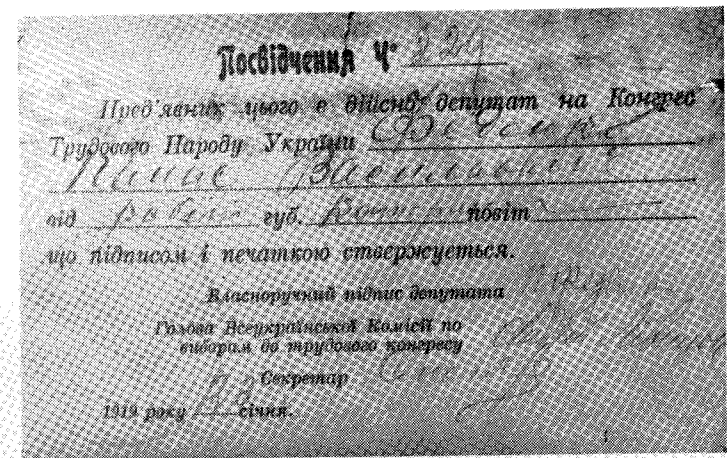 Посвідчення Ч°
Пред'явник цього є дійсно депутат на Конгрес
Трудового Народу України Феденко
Панас Васильович
від губ. повіт
що підписом і печаткою стверджується.
Власноручний підпис депутата
Голова Всеукраїнської Комісії по
виборам до трудового конгресу
Секретар
1919 року 23 січня.